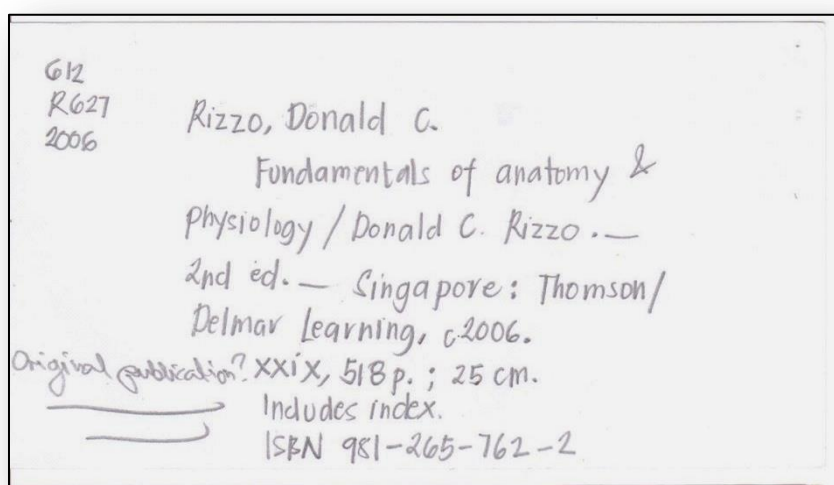 612
R627
2006
Rizzo, Donald C.
Fundamentals of anatomy &
physiology / Donald C. Rizzo. —
2nd ed. — Singapore: Thomson/
Delmar Learning, c2006.
Original publication? xxix, 518 p. ; 25 cm.
Includes index.
ISBN 981-265-762-2